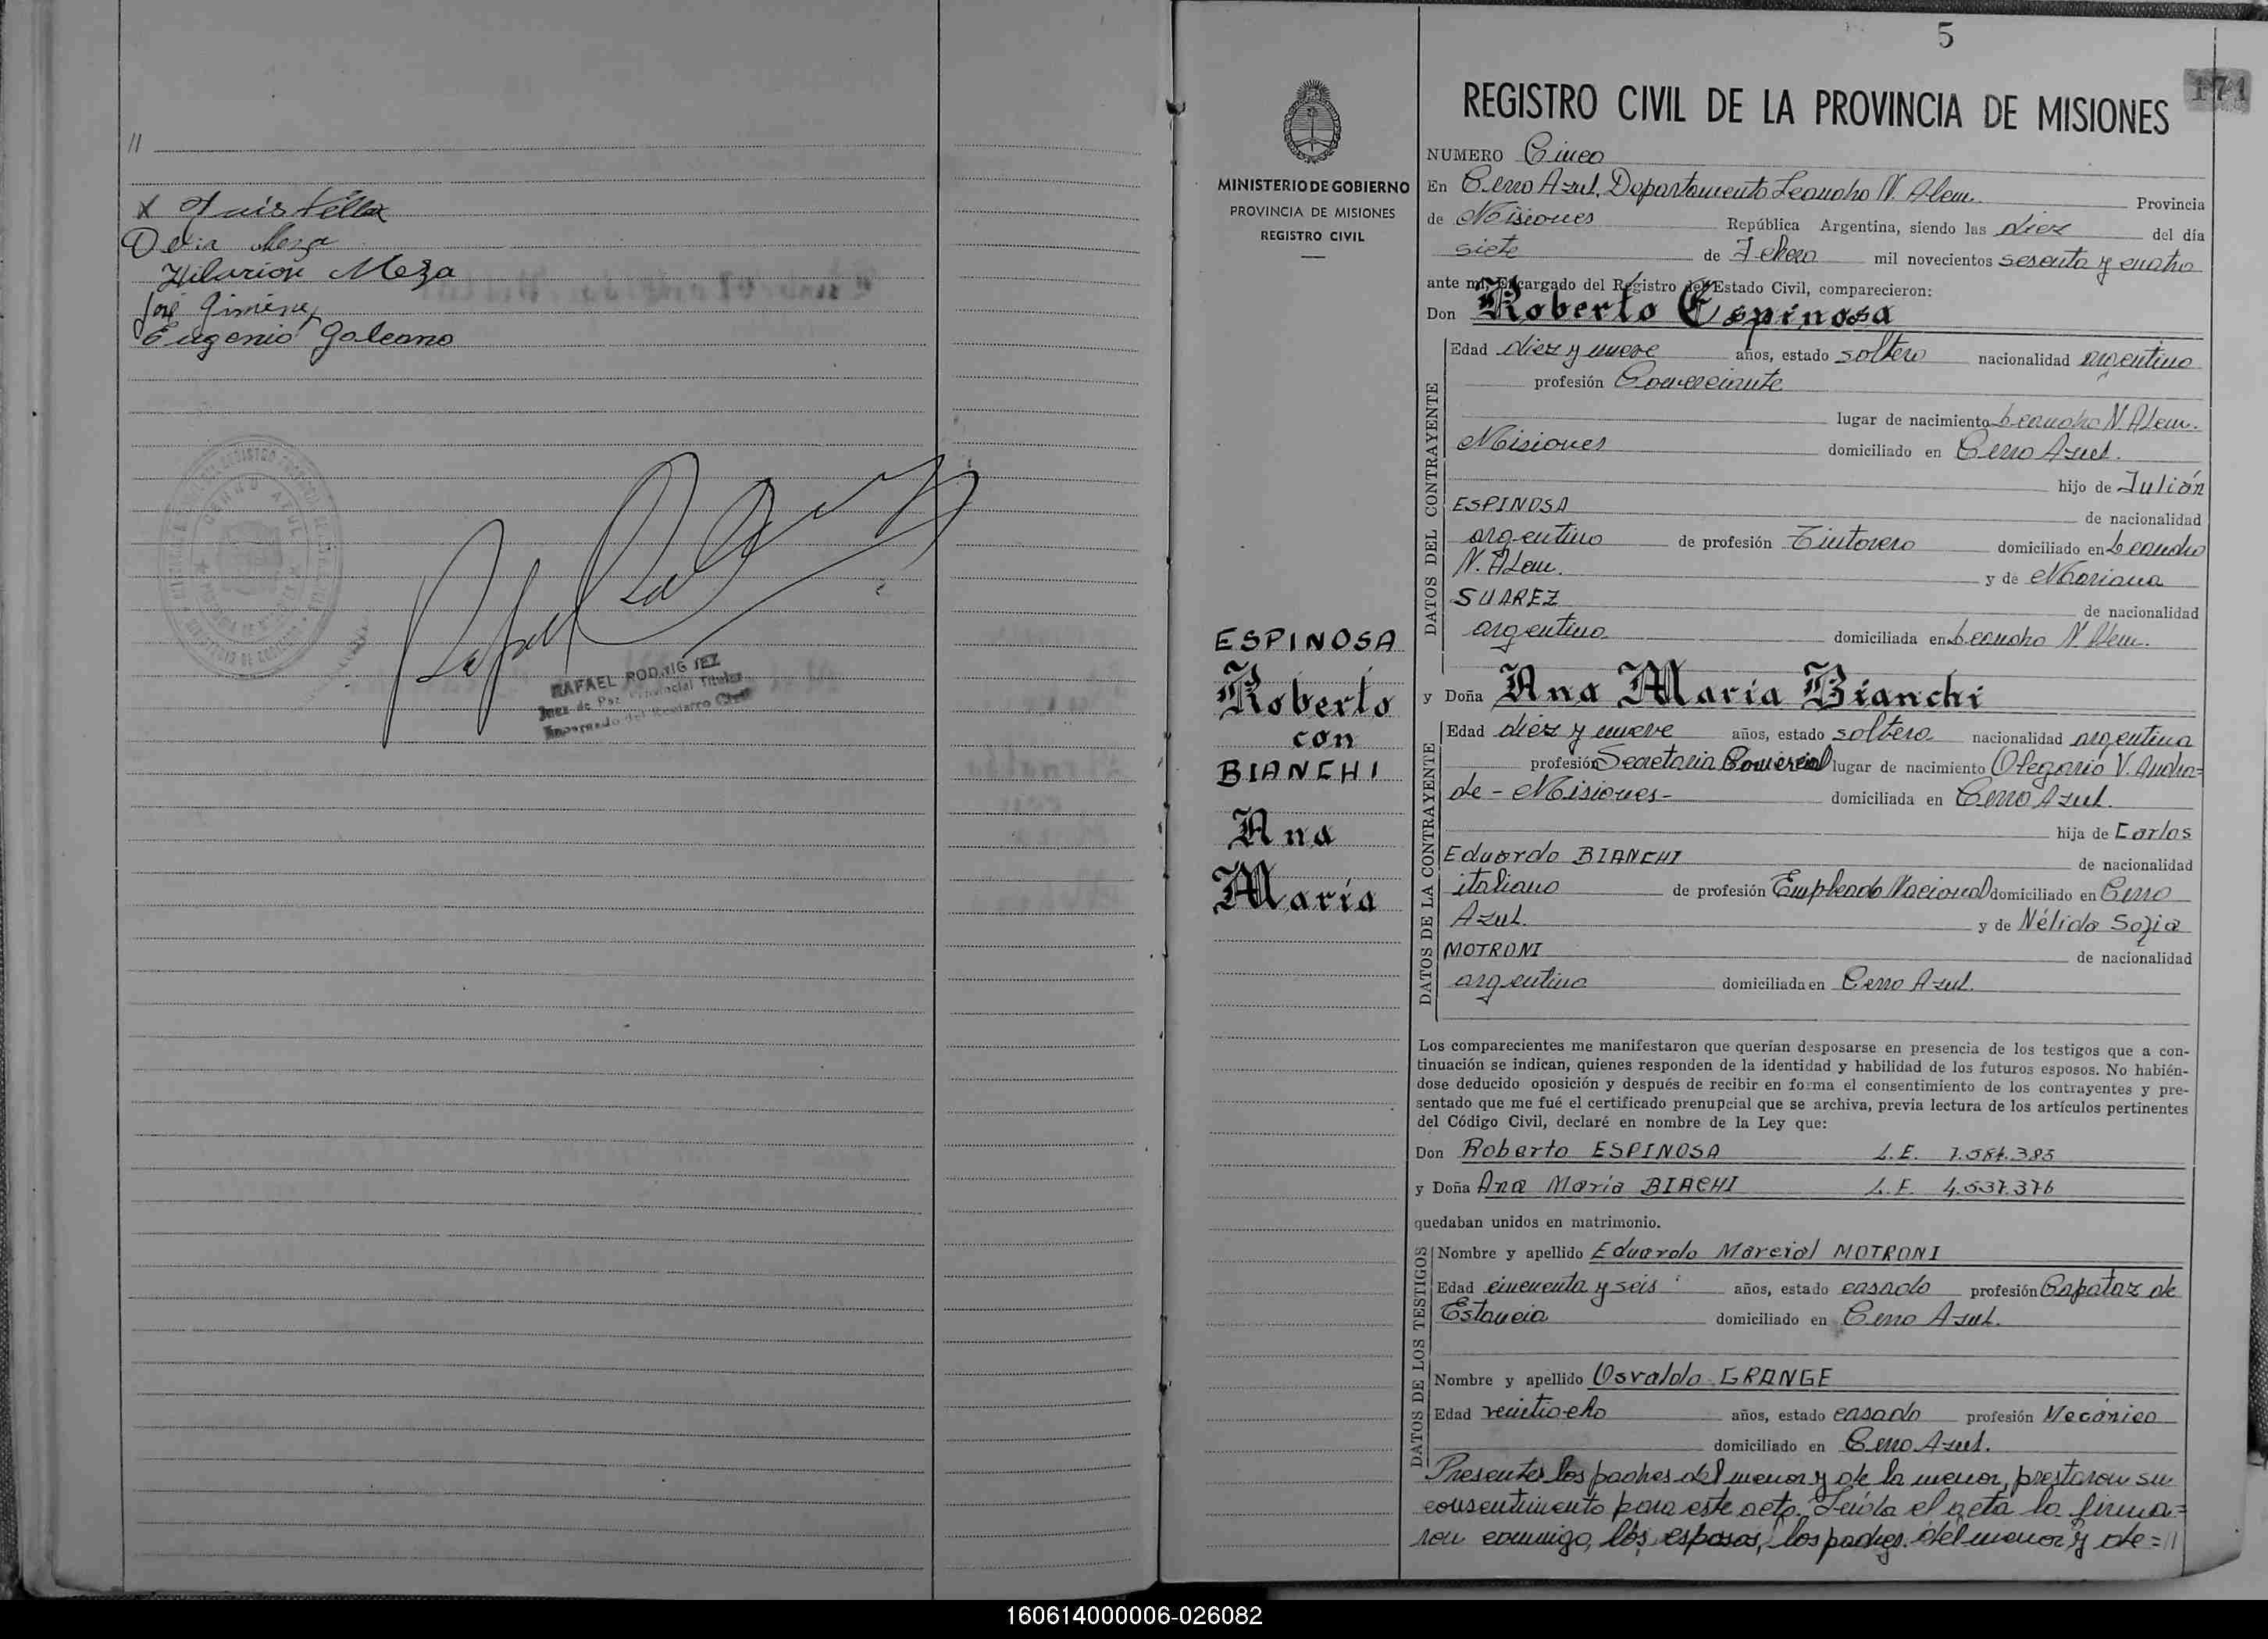 //
x Luis Villar
Delia Meza
Hilarion Meza
José Giménez
Eugenio Galeano
CERRO AZUL
RAFAEL RODRIGUEZ
Juez de Paz Provincial Titular
Encargado del Registro Civil
5
171
MINISTERIO DE GOBIERNO
PROVINCIA DE MISIONES
REGISTRO CIVIL
ESPINOSA
Roberto
con
BIANCHI
Ana
María
REGISTRO CIVIL DE LA PROVINCIA DE MISIONES
NUMERO Cinco
En Cerro Azul, Departamento Leandro N. Alem. Provincia
de Misiones República Argentina, siendo las diez del día
siete de Febrero mil novecientos sesenta y cuatro
ante mí, Encargado del Registro del Estado Civil, comparecieron:
Don Roberto Espinosa
DATOS DEL CONTRAYENTE
Edad diez y nueve años, estado soltero nacionalidad argentino
profesión Comerciante
lugar de nacimiento Leandro N. Alem.
Misiones domiciliado en Cerro Azul.
hijo de Julián
ESPINOSA de nacionalidad
argentino de profesión Tintorero domiciliado en Leandro
N. Alem. y de Mariana
SUAREZ de nacionalidad
argentina domiciliada en Leandro N. Alem.
y Doña Ana María Bianchi
DATOS DE LA CONTRAYENTE
Edad diez y nueve años, estado soltera nacionalidad argentina
profesión Secretaria Comercial lugar de nacimiento Olegario V. Andra=
de - Misiones- domiciliada en Cerro Azul.
hija de Carlos
Eduardo BIANCHI de nacionalidad
italiano de profesión Empleado Nacional domiciliado en Cerro
Azul. y de Nélida Sofia
MOTRONI de nacionalidad
argentina domiciliada en Cerro Azul.
Los comparecientes me manifestaron que querían desposarse en presencia de los testigos que a con-
tinuación se indican, quienes responden de la identidad y habilidad de los futuros esposos. No habién-
dose deducido oposición y después de recibir en forma el consentimiento de los contrayentes y pre-
sentado que me fué el certificado prenupcial que se archiva, previa lectura de los artículos pertinentes
del Código Civil, declaré en nombre de la Ley que:
Don Roberto ESPINOSA L.E. 7.584.385
y Doña Ana María BIACHI L.E. 4.537.376
quedaban unidos en matrimonio.
DATOS DE LOS TESTIGOS
Nombre y apellido Eduardo Marcial MOTRONI
Edad cincuenta y seis años, estado casado profesión Capataz de
Estancia domiciliado en Cerro Azul.
Nombre y apellido Osvaldo GRANGE
Edad veintiocho años, estado casado profesión Mecánico
domiciliado en Cerro Azul.
Presentes los padres del menor y de la menor, prestaron su
consentimiento para este acto. Leída el acta la firma=
ron conmigo, los esposos, los padres del menor y de=//
160614000006-026082